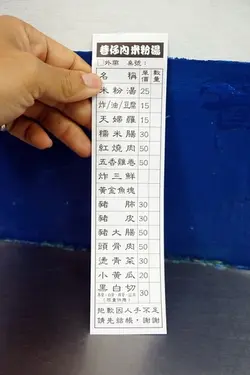 巷仔內米粉湯
□外帶 桌號:
名稱 單價 數量
米粉湯 25
炸/油/豆腐 15
天婦羅 15
糯米腸 30
紅燒肉 50
五香雞卷 50
炸三鮮
黃金魚塊
豬肺 30
豬皮 30
豬大腸 50
頭骨肉 50
燙青菜 30
小黃瓜 20
黑白切 30
抱歉因人手不足
請先結帳,謝謝